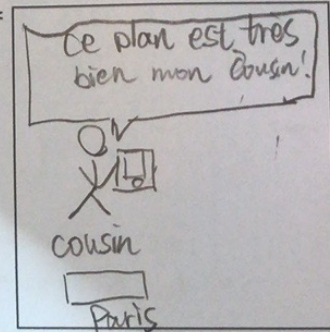 Ce plan est très
bien mon Cousin!
cousin
Paris